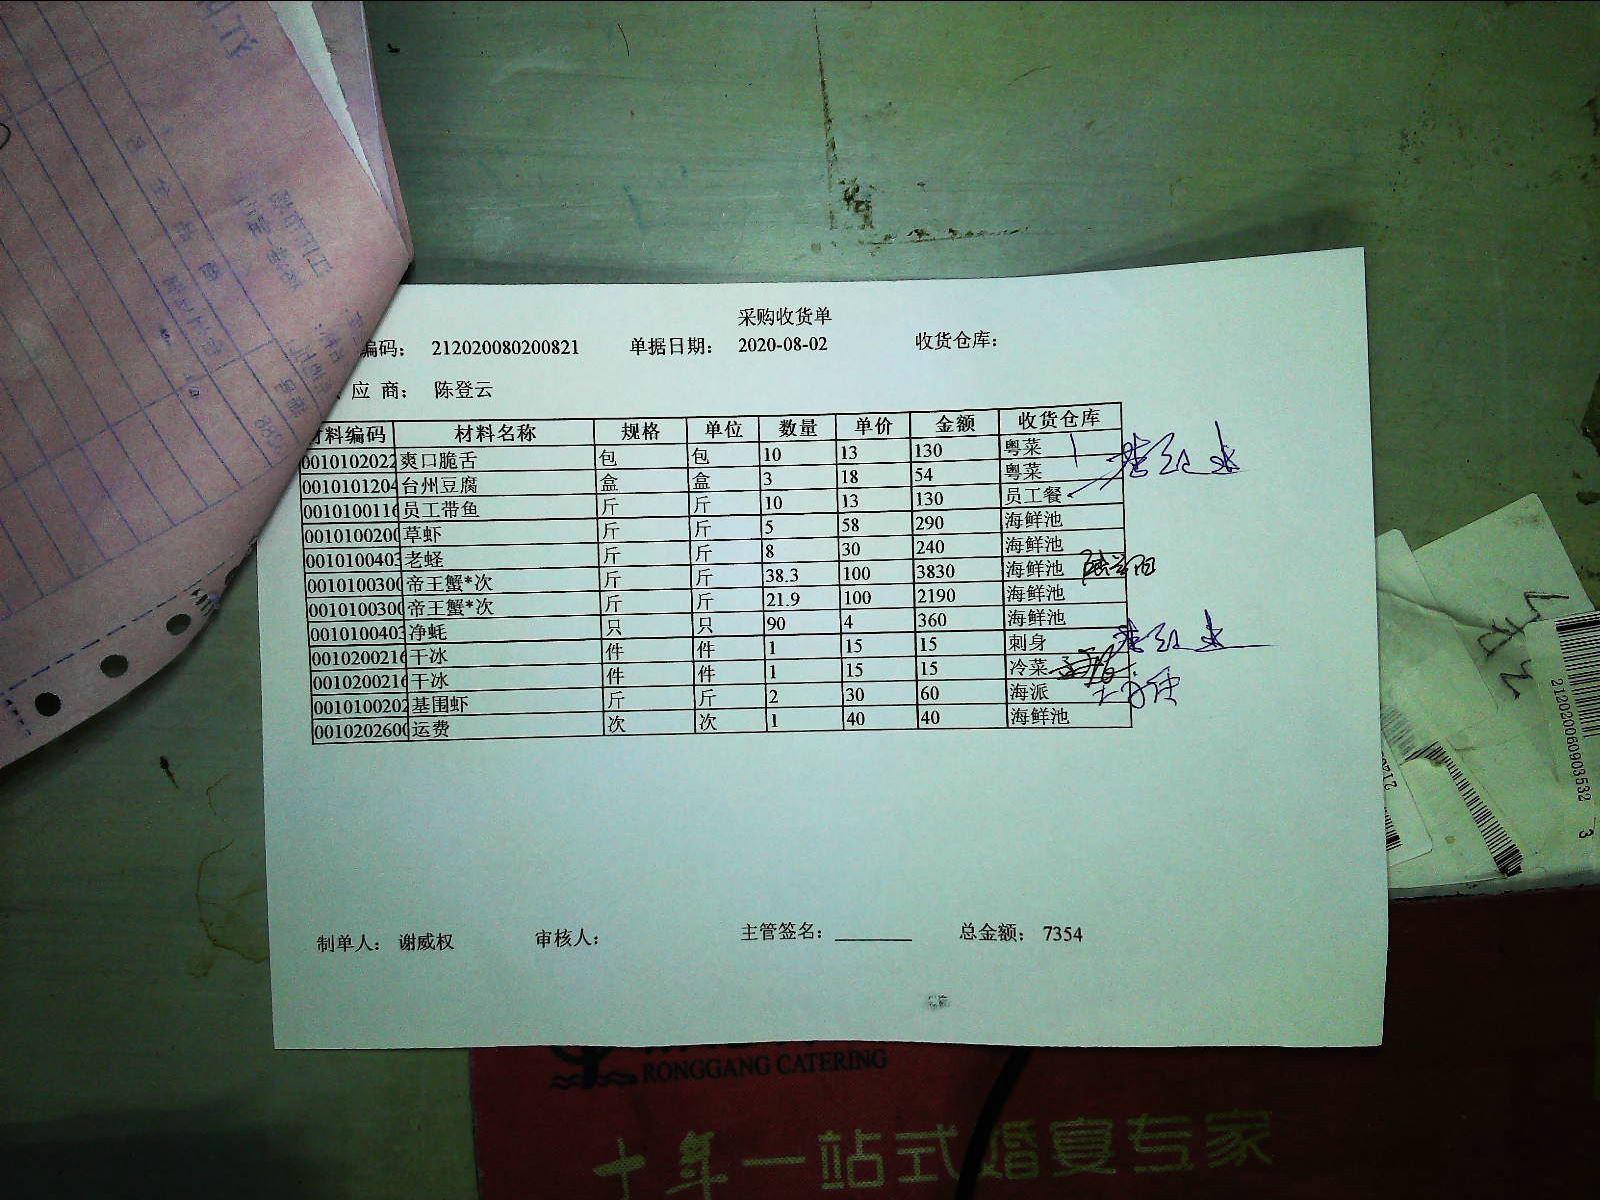 采购收货单
编码： 212020080200821 单据日期： 2020-08-02 收货仓库：
应 商： 陈登云
材料编码 材料名称 规格 单位 数量 单价 金额 收货仓库
0010102022 爽口脆舌 包 包 10 13 130 粤菜
0010101204 台州豆腐 盒 盒 3 18 54 粤菜
0010100116 员工带鱼 斤 斤 10 13 130 员工餐
0010100200 草虾 斤 斤 5 58 290 海鲜池
0010100403 老蛏 斤 斤 8 30 240 海鲜池
0010100300 帝王蟹*次 斤 斤 38.3 100 3830 海鲜池
0010100300 帝王蟹*次 斤 斤 21.9 100 2190 海鲜池
0010100403 净蚝 只 只 90 4 360 海鲜池
0010200216 干冰 件 件 1 15 15 刺身
0010200216 干冰 件 件 1 15 15 冷菜
0010100202 基围虾 斤 斤 2 30 60 海派
0010202600 运费 次 次 1 40 40 海鲜池
制单人： 谢威权 审核人： 主管签名： 总金额： 7354
212020060903532
3
RONGGANG CATERING
十年一站式婚宴专家